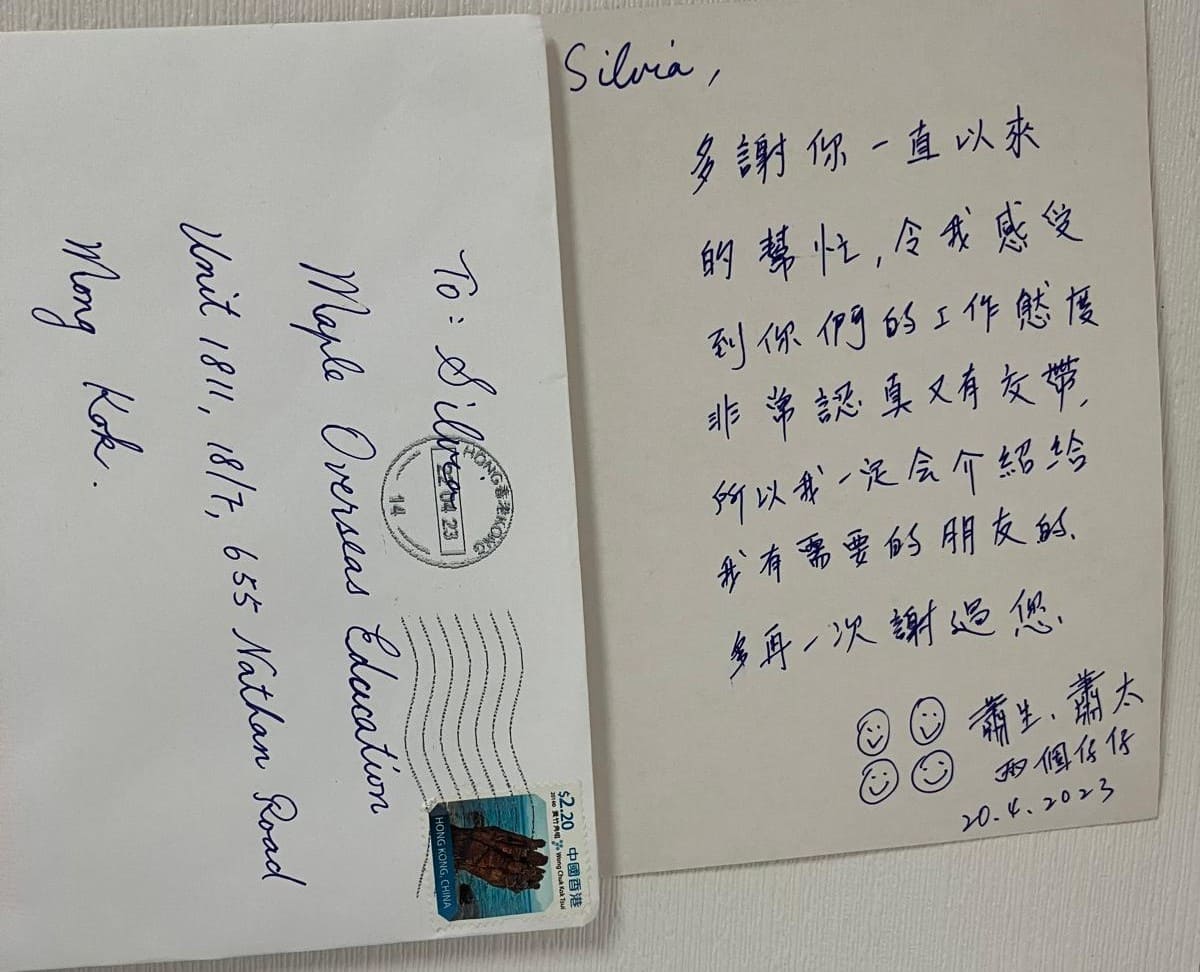 To: Silvia
Maple Overseas Education
Unit 1811, 18/F, 655 Nathan Road
Mong Kok.
HONG 香港 KONG
22 04 23
14
$2.20
中國香港
黃竹角咀
Wong Chuk Kok Tsui
HONG KONG, CHINA
Silvia,
多謝你一直以來
的幫忙,令我感受
到你們的工作態度
非常認真又有交帶,
所以我一定会介紹給
我有需要的朋友的.
多再一次謝過您.
蕭生、蕭太
兩個仔仔
20.4.2023